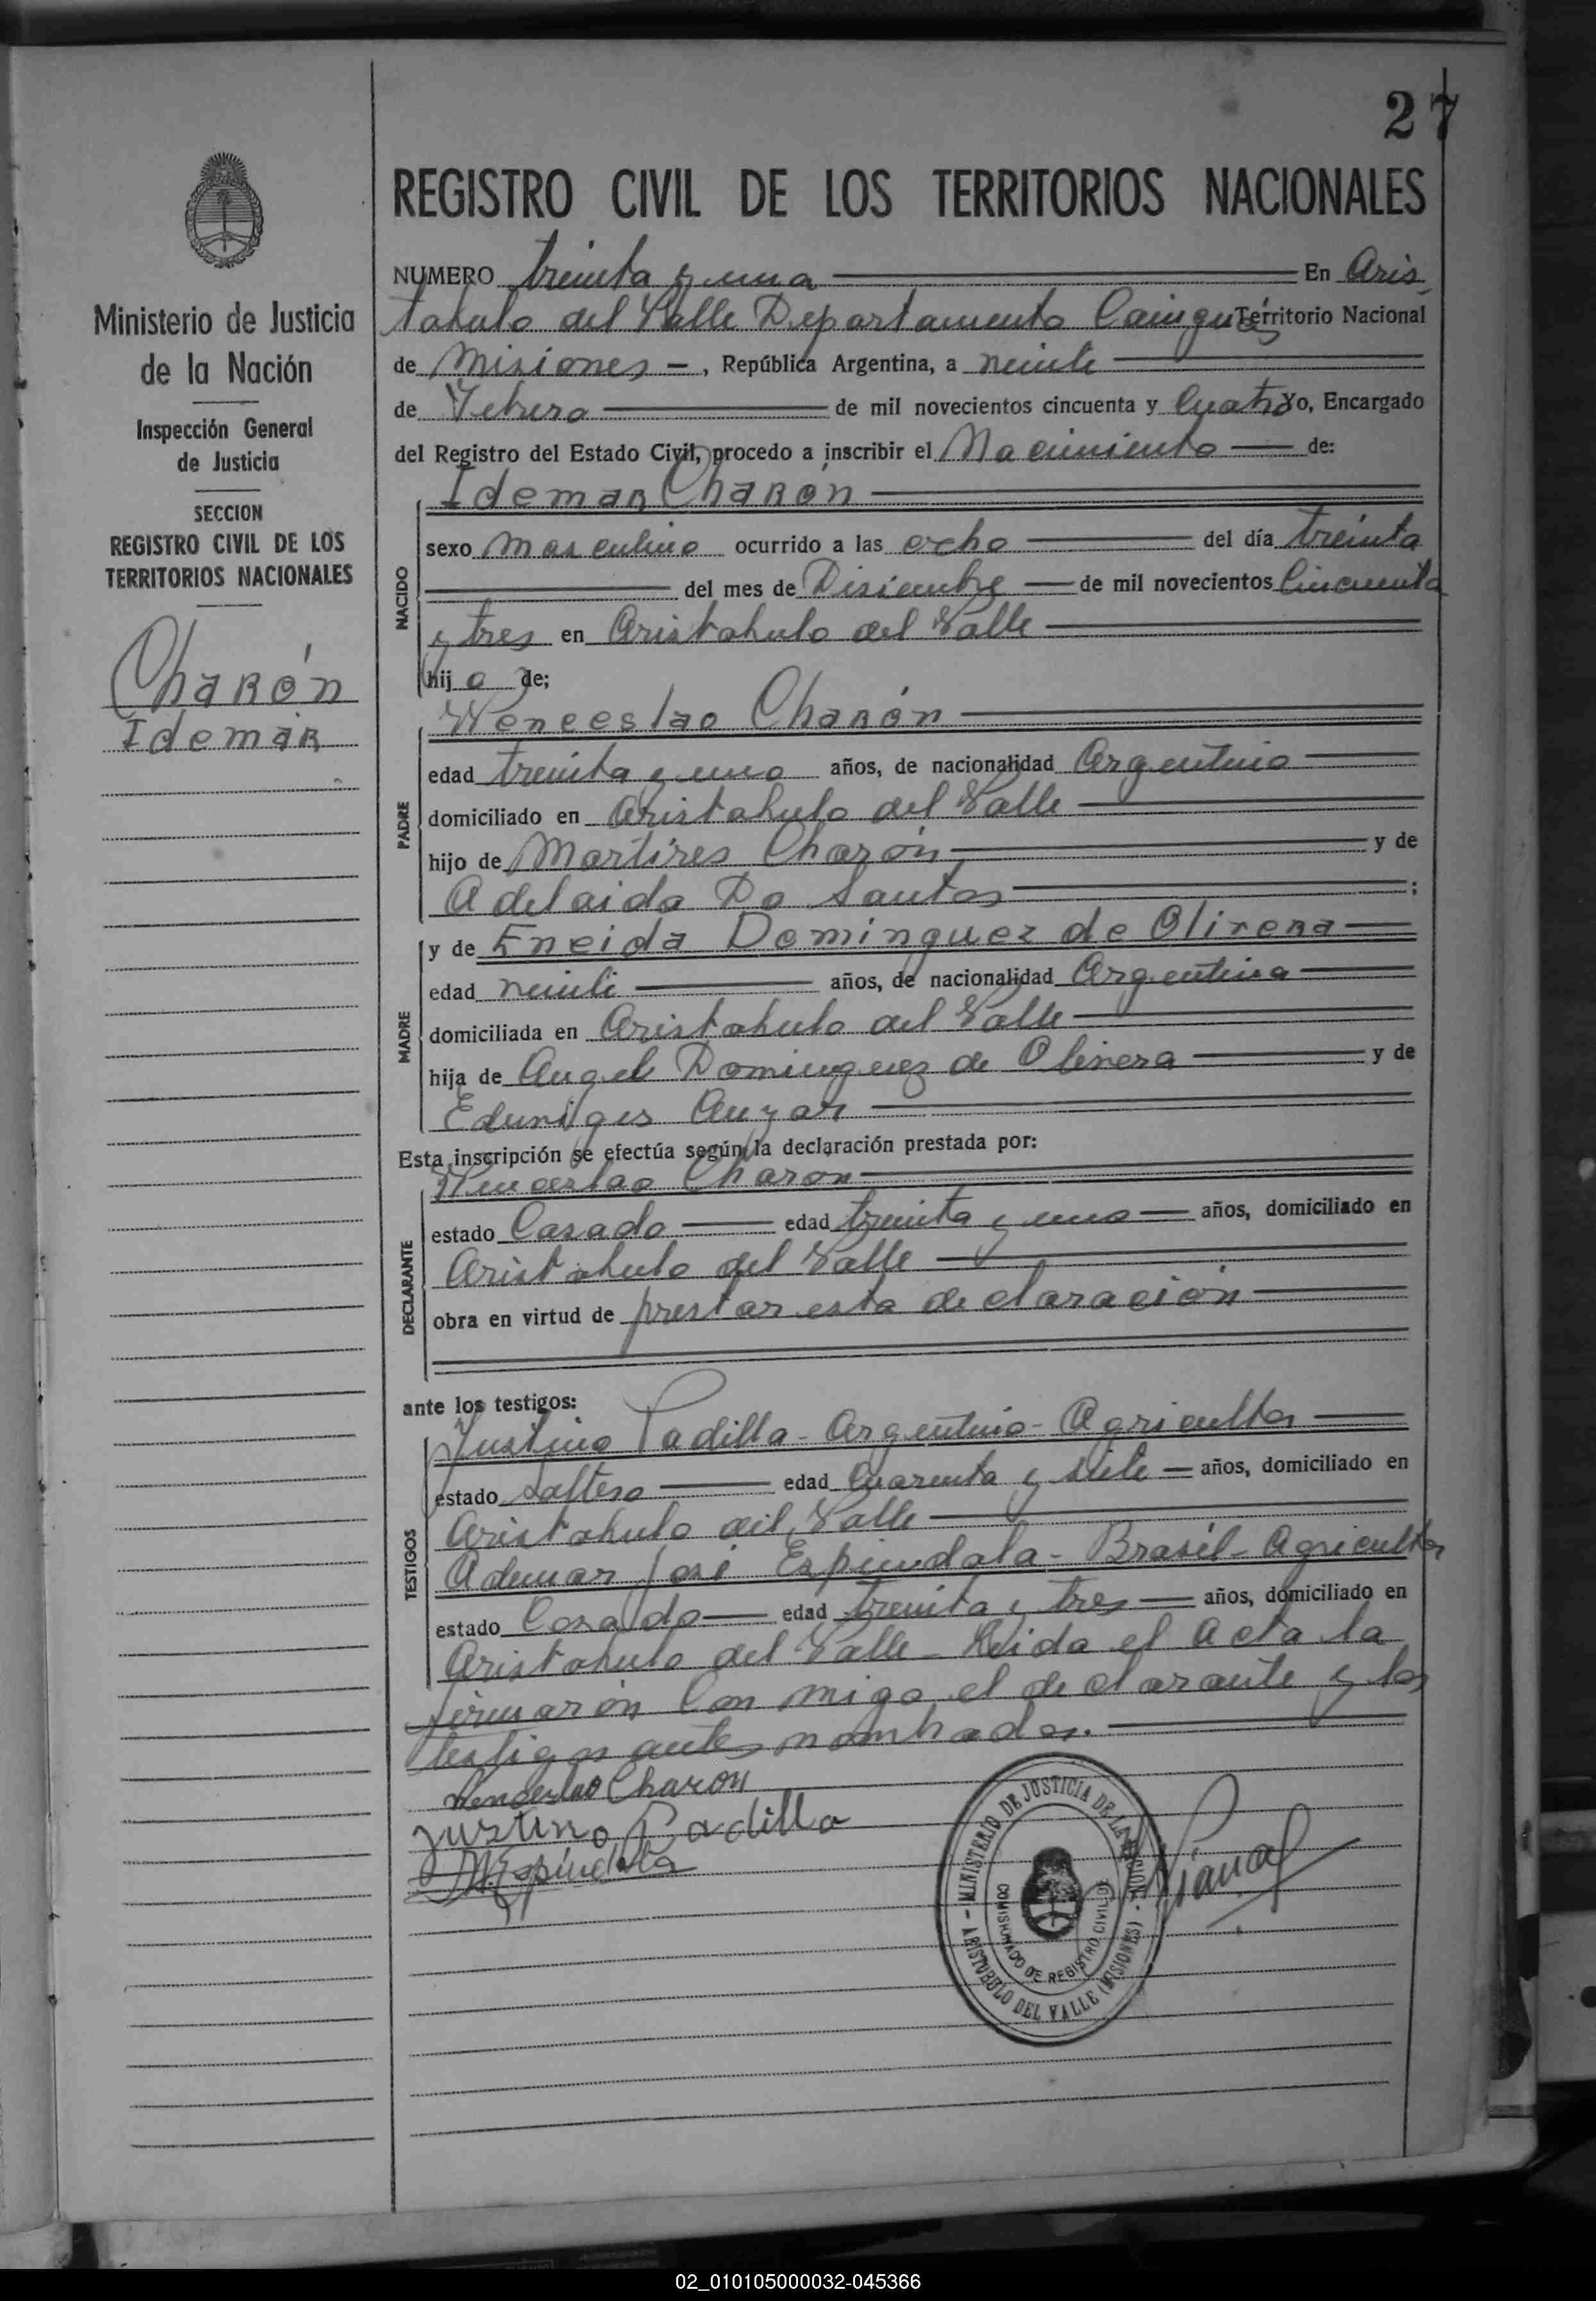 27
REGISTRO CIVIL DE LOS TERRITORIOS NACIONALES
Ministerio de Justicia
de la Nación
Inspección General
de Justicia
SECCION
REGISTRO CIVIL DE LOS
TERRITORIOS NACIONALES
Charón
Idemar
NUMERO treinta y una En Aris
tobulo del Valle Departamento Cainguas Territorio Nacional
de Misiones - , República Argentina, a veinte
de Febrero de mil novecientos cincuenta y Cuatro Yo, Encargado
del Registro del Estado Civil, procedo a inscribir el Nacimiento de:
Idemar Charón
NACIDO
sexo masculino ocurrido a las ocho del día treinta
del mes de Disiembre de mil novecientos Cincuenta
y tres en Aristobulo del Valle
hijo de;
Wenceslao Charón
PADRE
edad treinta y uno años, de nacionalidad Argentino
domiciliado en Aristobulo del Valle
hijo de Martires Charón y de
Adelaida Do Santos ;
MADRE
y de Eneida Dominguez de Olivera
edad veinte años, de nacionalidad Argentina
domiciliada en Aristobulo del Valle
hija de Angel Dominguez de Olivera y de
Eduviges
Esta inscripción se efectúa según la declaración prestada por:
Wenceslao Charon
DECLARANTE
estado Casado edad treinta y uno años, domiciliado en
Aristobulo del Valle
obra en virtud de prestar esta declaración
ante los testigos:
TESTIGOS
Justino Padilla - Argentino - Agricultor
estado Soltero edad Cuarenta y siete años, domiciliado en
Aristobulo del Valle
Ademar José Espindola - Brasil - Agricultor
estado Casado edad treinta y tres años, domiciliado en
Aristobulo del Valle - Leida el Acta la
firmarón Con migo el declarante y los
testigos antes nombrados.
Wenceslao Charon
Justino Padilla
Espindola
- MINISTERIO DE JUSTICIA DE LA NACION -
COMISIONADO DE REGISTRO CIVIL DE
ARISTOBULO DEL VALLE (MISIONES)
02_010105000032-045366